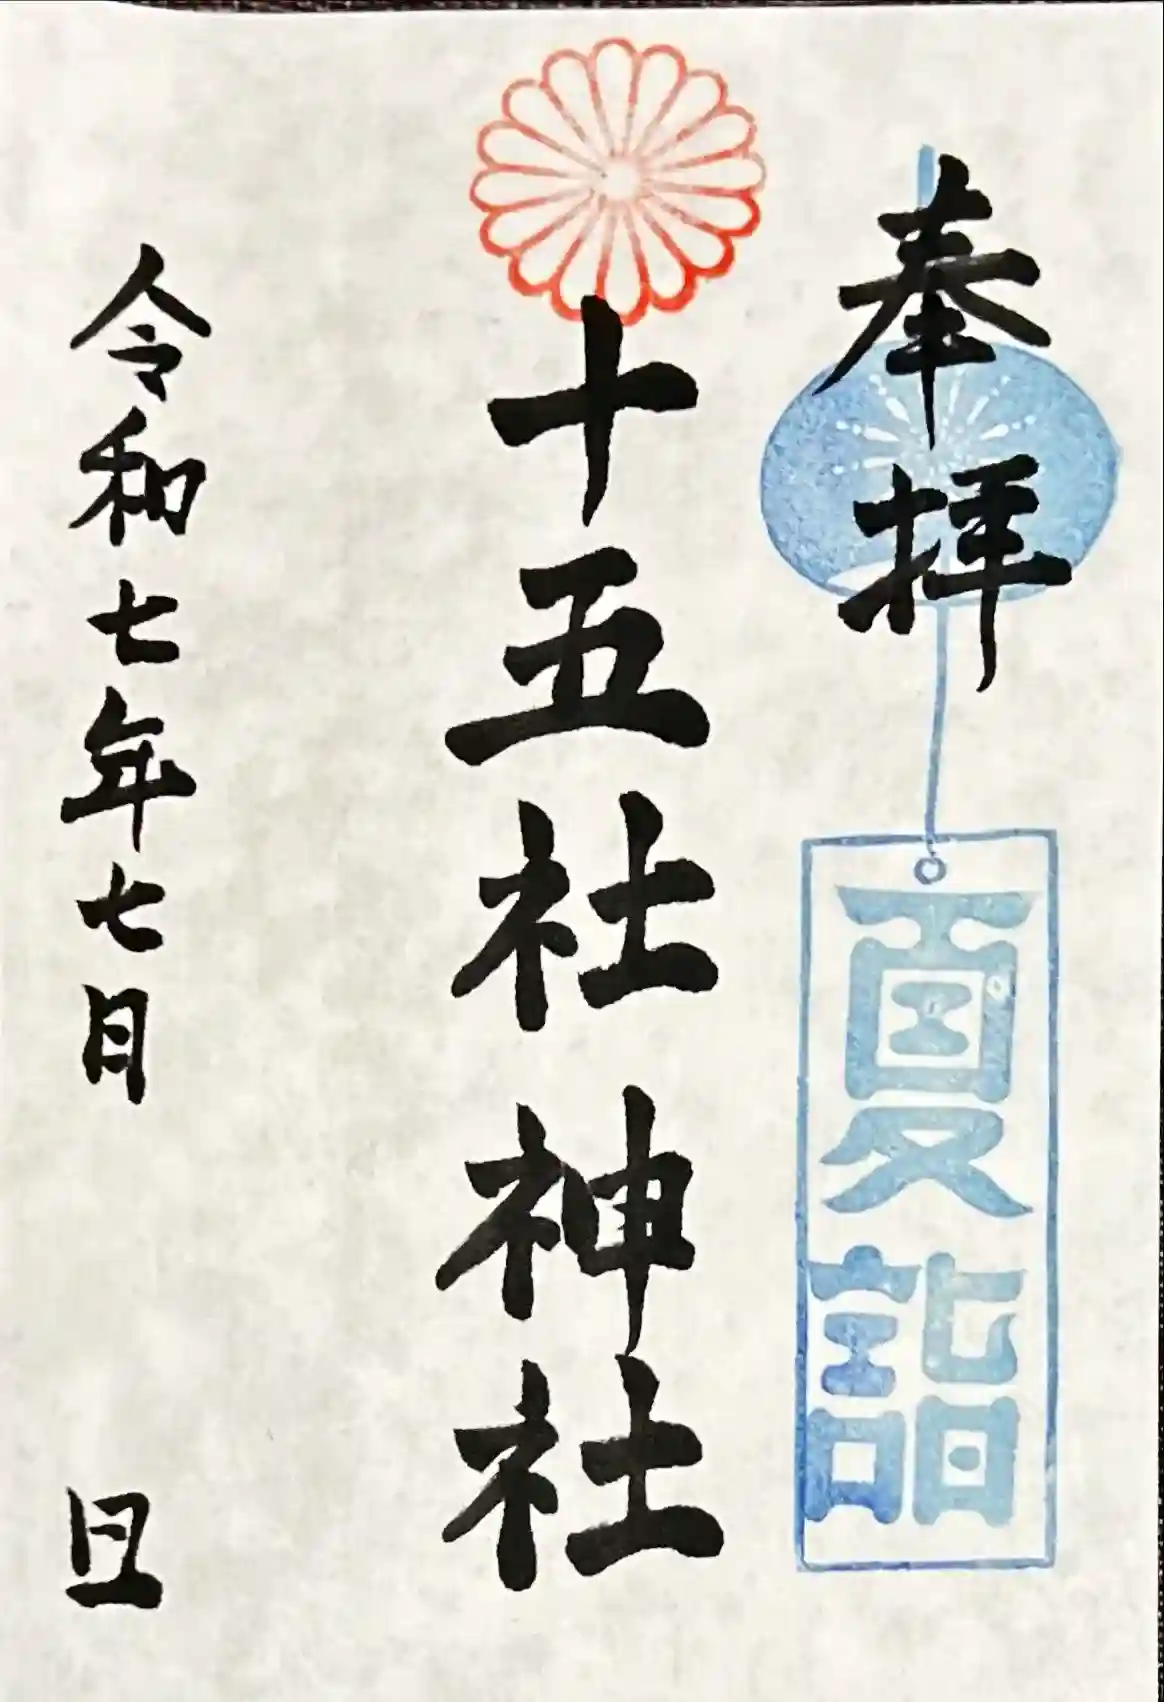 奉拝
夏詣
十五社神社
令和七年七月 旦